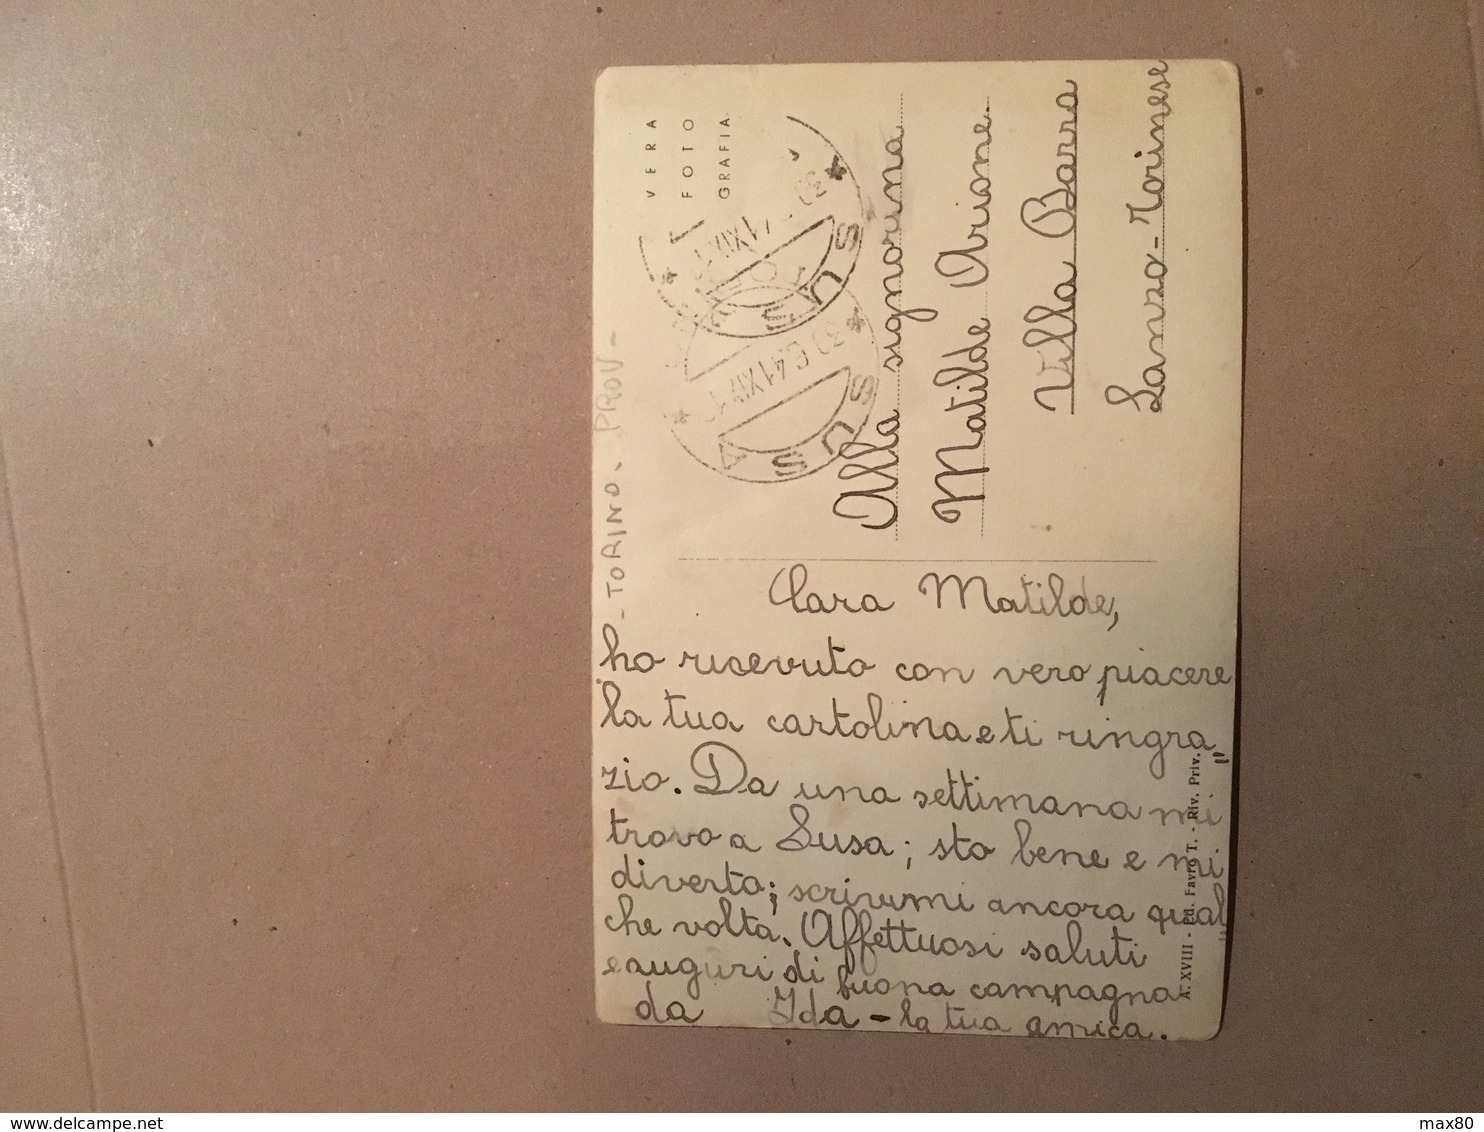 - TORINO - PROV -
VERA
FOTO
GRAFIA
SUSA
SUSA
Alla signorina
Matilde Arione.
Villa Barra
Lanzo - Torinese
Cara Matilde,
ho ricevuto con vero piacere
la tua cartolina e ti ringra"
zio. Da una settimana mi
trovo a Susa; sto bene e mi
diverto; scrivimi ancora qual"
che volta. Affettuosi saluti
e auguri di buona campagna
da Ida - la tua amica.
A. XVIII - Ed. Favro T. - Riv. Priv.
www.delcampe.net
max80